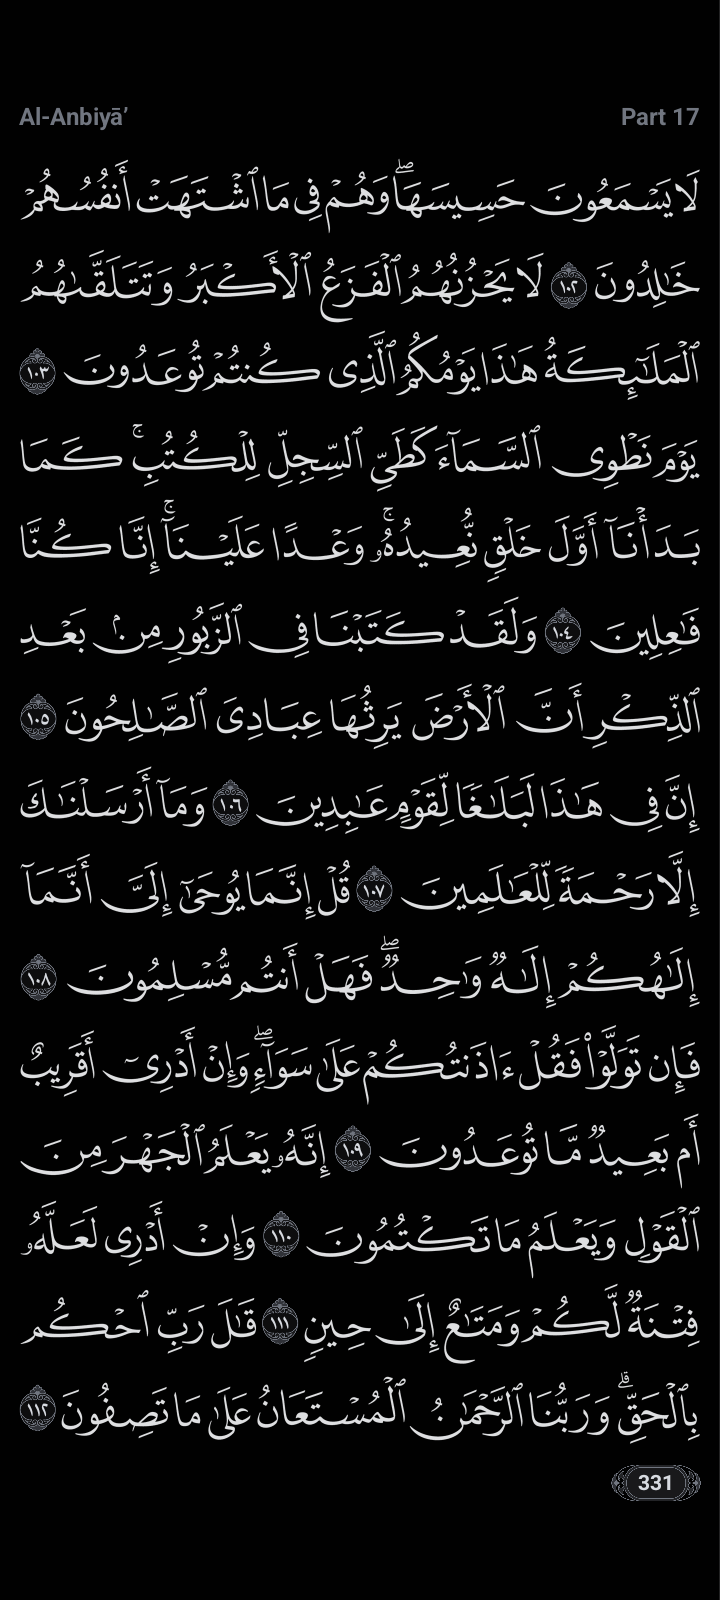 Al-Anbiyā’
Part 17
لَا يَسْمَعُونَ حَسِيسَهَا ۖ وَهُمْ فِى مَا ٱشْتَهَتْ أَنفُسُهُمْ
خَـٰلِدُونَ ١٠٢ لَا يَحْزُنُهُمُ ٱلْفَزَعُ ٱلْأَكْبَرُ وَتَتَلَقَّىٰهُمُ
ٱلْمَلَـٰٓئِكَةُ هَـٰذَا يَوْمُكُمُ ٱلَّذِى كُنتُمْ تُوعَدُونَ ١٠٣
يَوْمَ نَطْوِى ٱلسَّمَآءَ كَطَىِّ ٱلسِّجِلِّ لِلْكُتُبِ ۚ كَمَا
بَدَأْنَآ أَوَّلَ خَلْقٍ نُّعِيدُهُۥ ۚ وَعْدًا عَلَيْنَآ ۚ إِنَّا كُنَّا
فَـٰعِلِينَ ١٠٤ وَلَقَدْ كَتَبْنَا فِى ٱلزَّبُورِ مِنۢ بَعْدِ
ٱلذِّكْرِ أَنَّ ٱلْأَرْضَ يَرِثُهَا عِبَادِىَ ٱلصَّـٰلِحُونَ ١٠٥
إِنَّ فِى هَـٰذَا لَبَلَـٰغًا لِّقَوْمٍ عَـٰبِدِينَ ١٠٦ وَمَآ أَرْسَلْنَـٰكَ
إِلَّا رَحْمَةً لِّلْعَـٰلَمِينَ ١٠٧ قُلْ إِنَّمَا يُوحَىٰٓ إِلَىَّ أَنَّمَآ
إِلَـٰهُكُمْ إِلَـٰهٌ وَٰحِدٌ ۖ فَهَلْ أَنتُم مُّسْلِمُونَ ١٠٨
فَإِن تَوَلَّوْا۟ فَقُلْ ءَاذَنتُكُمْ عَلَىٰ سَوَآءٍ ۖ وَإِنْ أَدْرِىٓ أَقَرِيبٌ
أَم بَعِيدٌ مَّا تُوعَدُونَ ١٠٩ إِنَّهُۥ يَعْلَمُ ٱلْجَهْرَ مِنَ
ٱلْقَوْلِ وَيَعْلَمُ مَا تَكْتُمُونَ ١١٠ وَإِنْ أَدْرِى لَعَلَّهُۥ
فِتْنَةٌ لَّكُمْ وَمَتَـٰعٌ إِلَىٰ حِينٍ ١١١ قَـٰلَ رَبِّ ٱحْكُم
بِٱلْحَقِّ ۗ وَرَبُّنَا ٱلرَّحْمَـٰنُ ٱلْمُسْتَعَانُ عَلَىٰ مَا تَصِفُونَ ١١٢
331